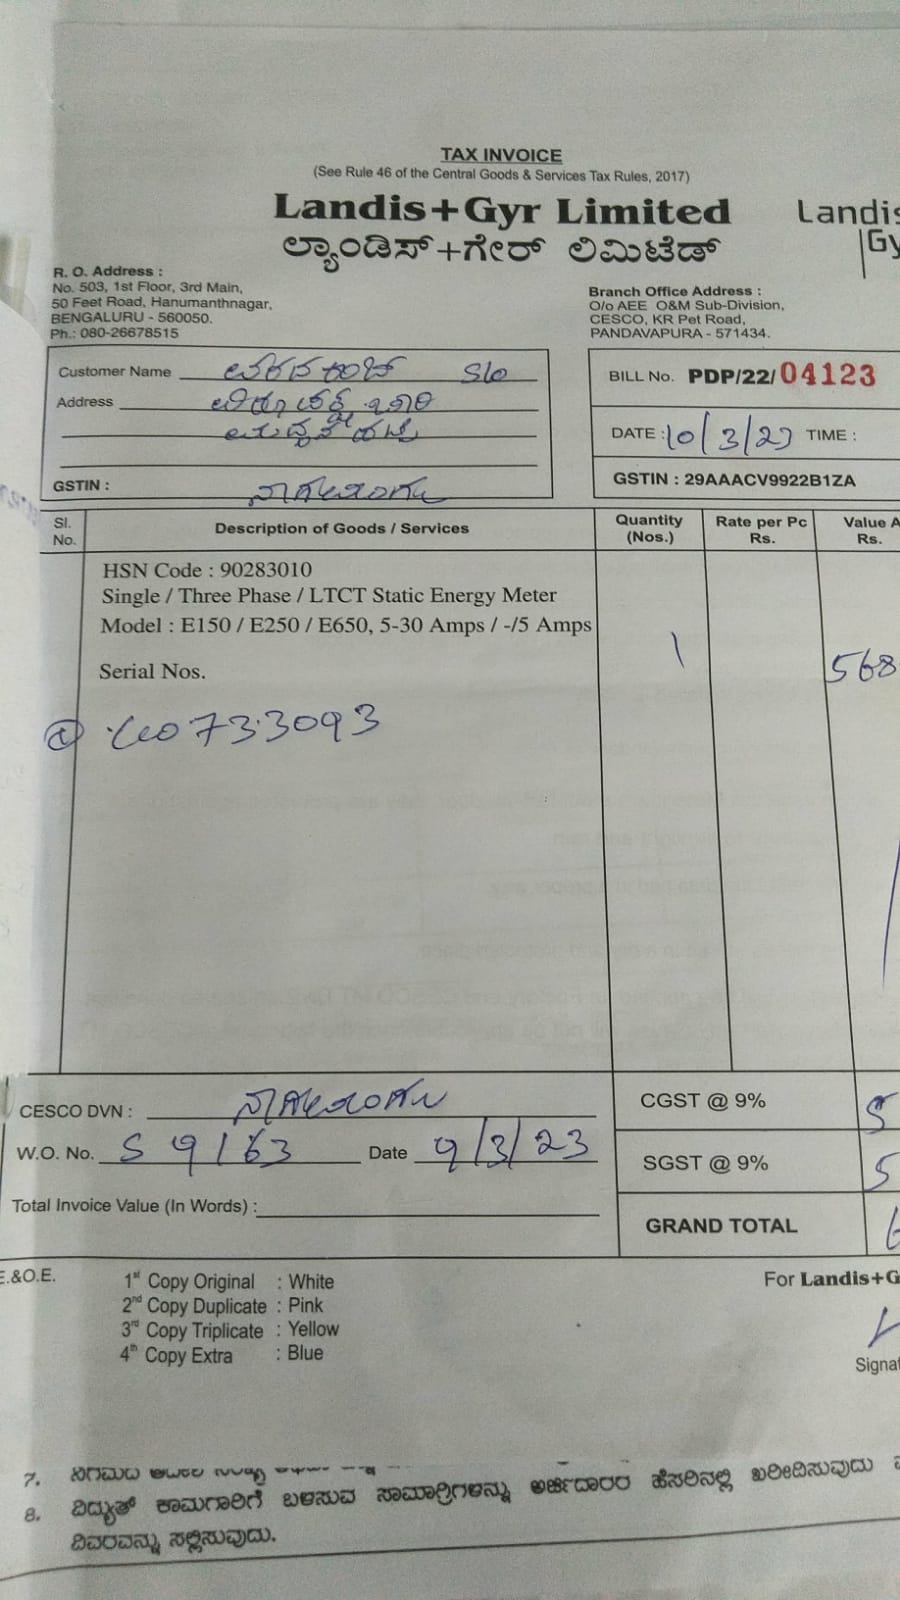 TAX INVOICE
(See Rule 46 of the Central Goods & Services Tax Rules, 2017)
Landis+Gyr Limited
Landis
Gy
ಲ್ಯಾಂಡಿಸ್+ಗೇರ್ ಲಿಮಿಟೆಡ್
R. O. Address :
No. 503, 1st Floor, 3rd Main,
50 Feet Road, Hanumanthnagar,
BENGALURU - 560050.
Ph.: 080-26678515
Branch Office Address :
O/o AEE O&M Sub-Division,
CESCO, KR Pet Road,
PANDAVAPURA - 571434.
Customer Name S/o
Address
GSTIN :
BILL No. PDP/22/ 04123
DATE : 10/3/23 TIME :
GSTIN : 29AAACV9922B1ZA
Sl. No. Description of Goods / Services Quantity (Nos.) Rate per Pc Rs. Value A Rs.
HSN Code : 90283010
Single / Three Phase / LTCT Static Energy Meter
Model : E150 / E250 / E650, 5-30 Amps / -/5 Amps
1 568
Serial Nos.
CESCO DVN :
W.O. No. S 9163 Date 9/3/23
Total Invoice Value (In Words) :
CGST @ 9% 5
SGST @ 9% 5
GRAND TOTAL 6
E.&O.E.
1st Copy Original : White
2nd Copy Duplicate : Pink
3rd Copy Triplicate : Yellow
4th Copy Extra : Blue
For Landis+G
Signat
7.
8. ವಿದ್ಯುತ್ ಕಾಮಗಾರಿಗೆ ಬಳಸುವ ಸಾಮಾಗ್ರಿಗಳನ್ನು ಅರ್ಜಿದಾರರ ಹೆಸರಿನಲ್ಲಿ ಖರೀದಿಸುವುದು
ವಿವರವನ್ನು ಸಲ್ಲಿಸುವುದು.